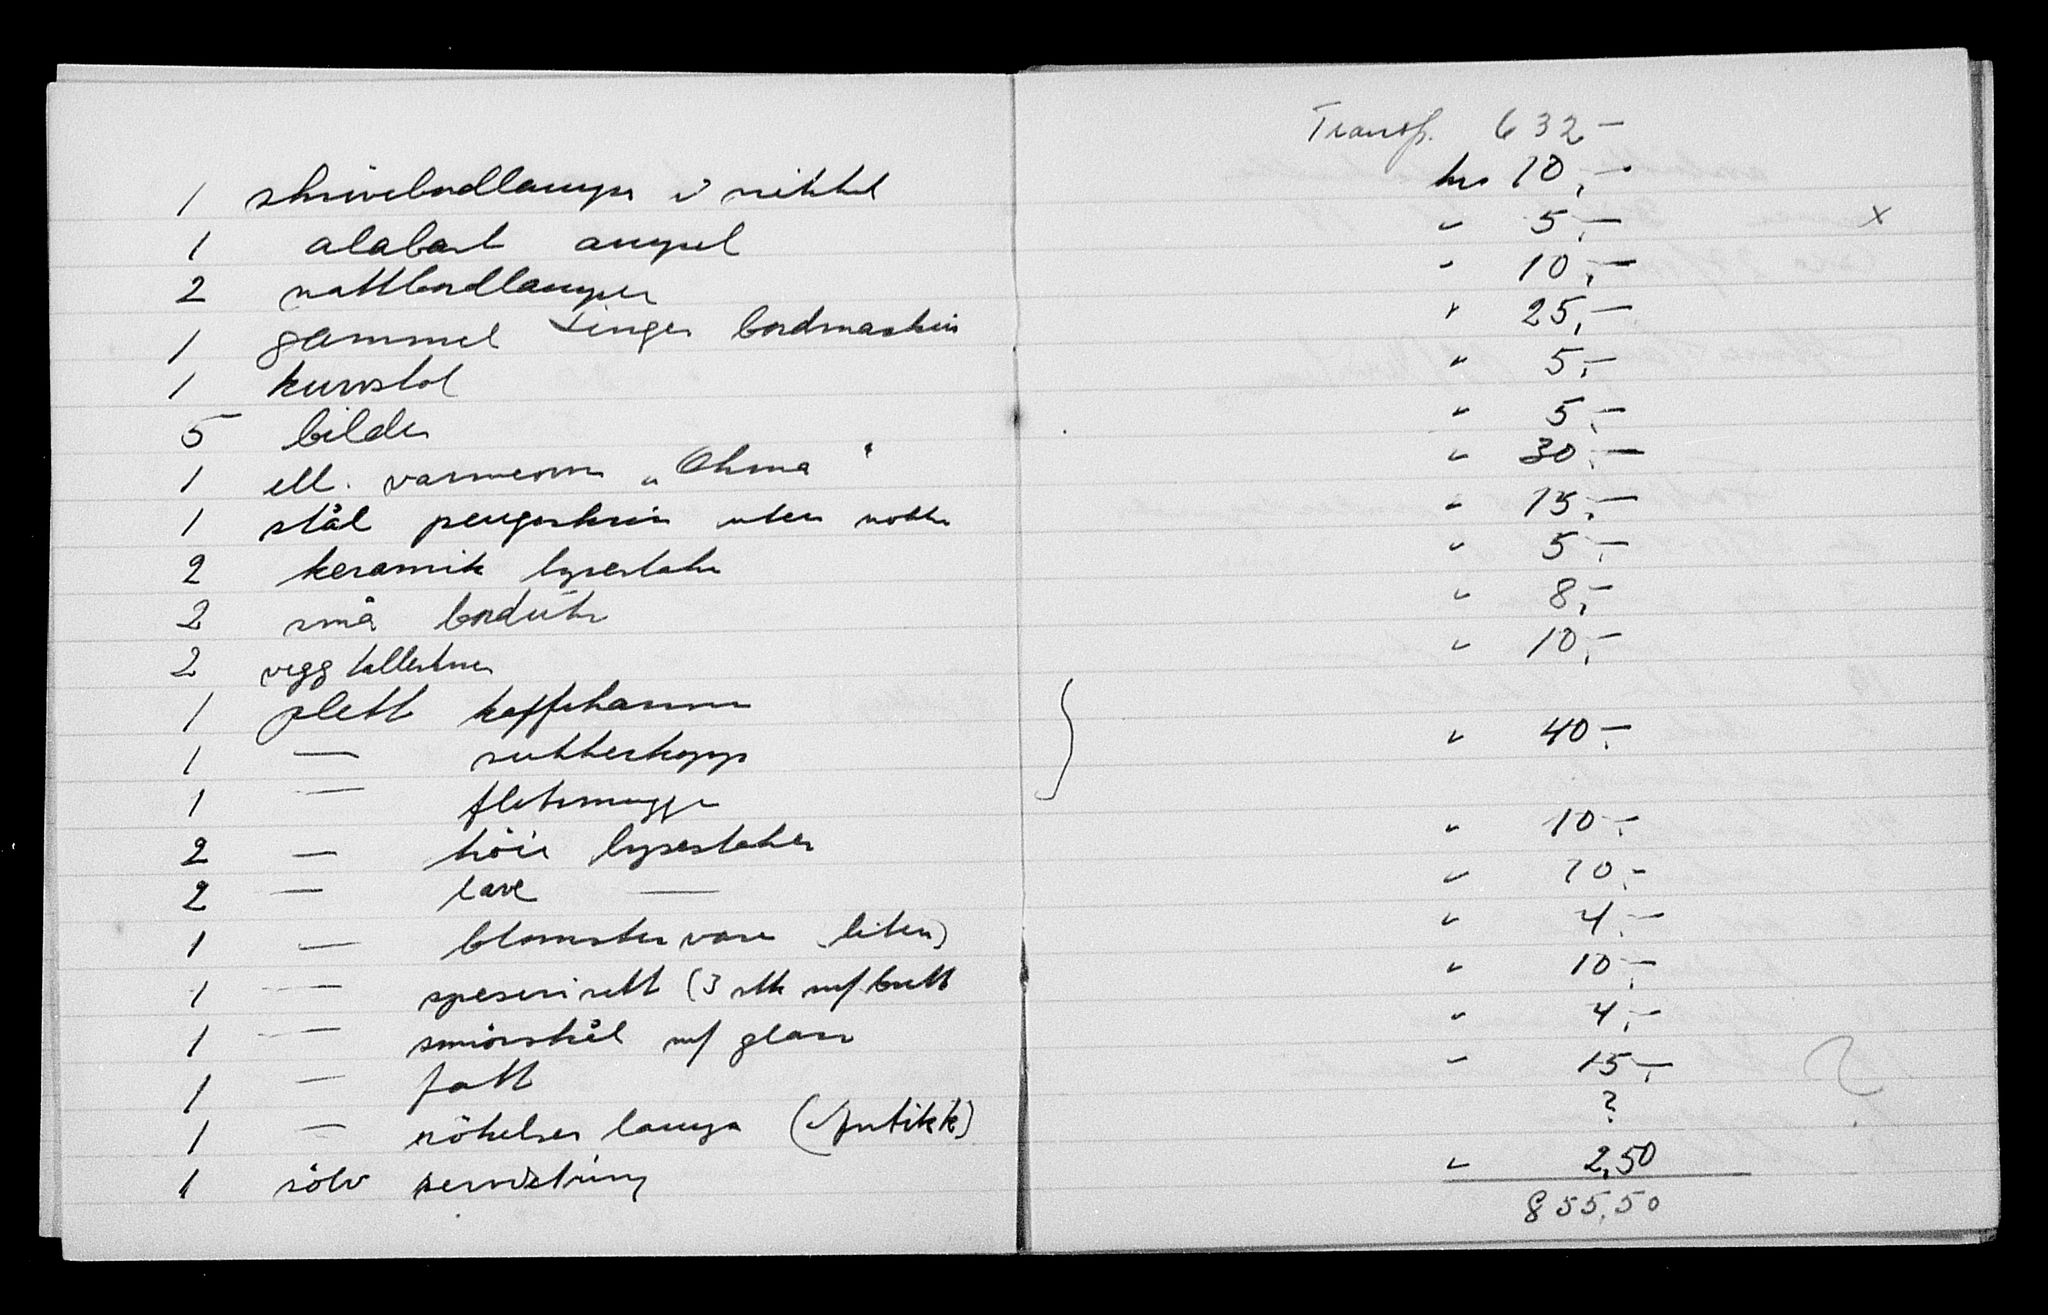 Transp. 632 —
1 skrivebordlampe i nikkel kr 10,—
1 alabast ampel " 5,— x
2 nattbordlamper " 10,—
1 gammel Singer bordmaskin " 25,—
1 kurvstol " 5,—
5 bilder " 5,—
1 ell. varmeovn „Ohma" " 30,—
1 stål pengeskrin uten nøkler " 15,—
2 keramik lysestaker " 5,—
2 små bordure " 8,—
2 vegg tallerkner " 10,—
1 plett kaffekanne
1 — sukkerkopp } " 40,—
1 — fløtemugge
2 — høie lysestaker " 10,—
2 — lave — " 10,—
1 — blomstervase (liten) " 4,—
1 — speserisett (3 stk m/ brett " 10,—
1 — smörskål m/ glass " 4,—
1 — fatt " 15,—
1 — rökelses lampe (Antikk) ?
1 sölv serviettring " 2,50
855,50